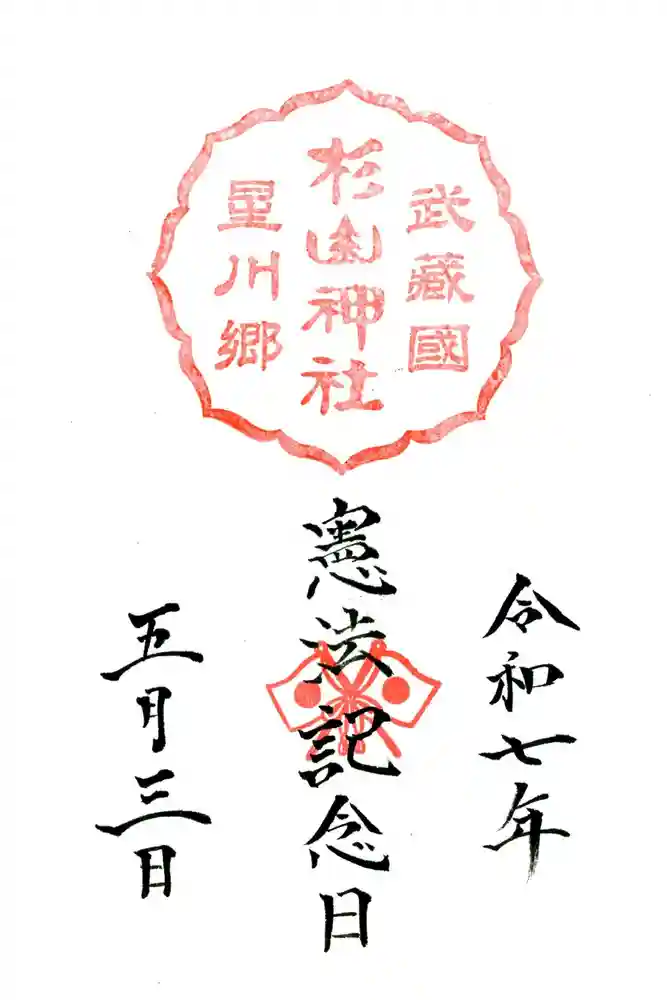 武藏國
杉山神社
星川郷
令和七年
憲法記念日
五月三日